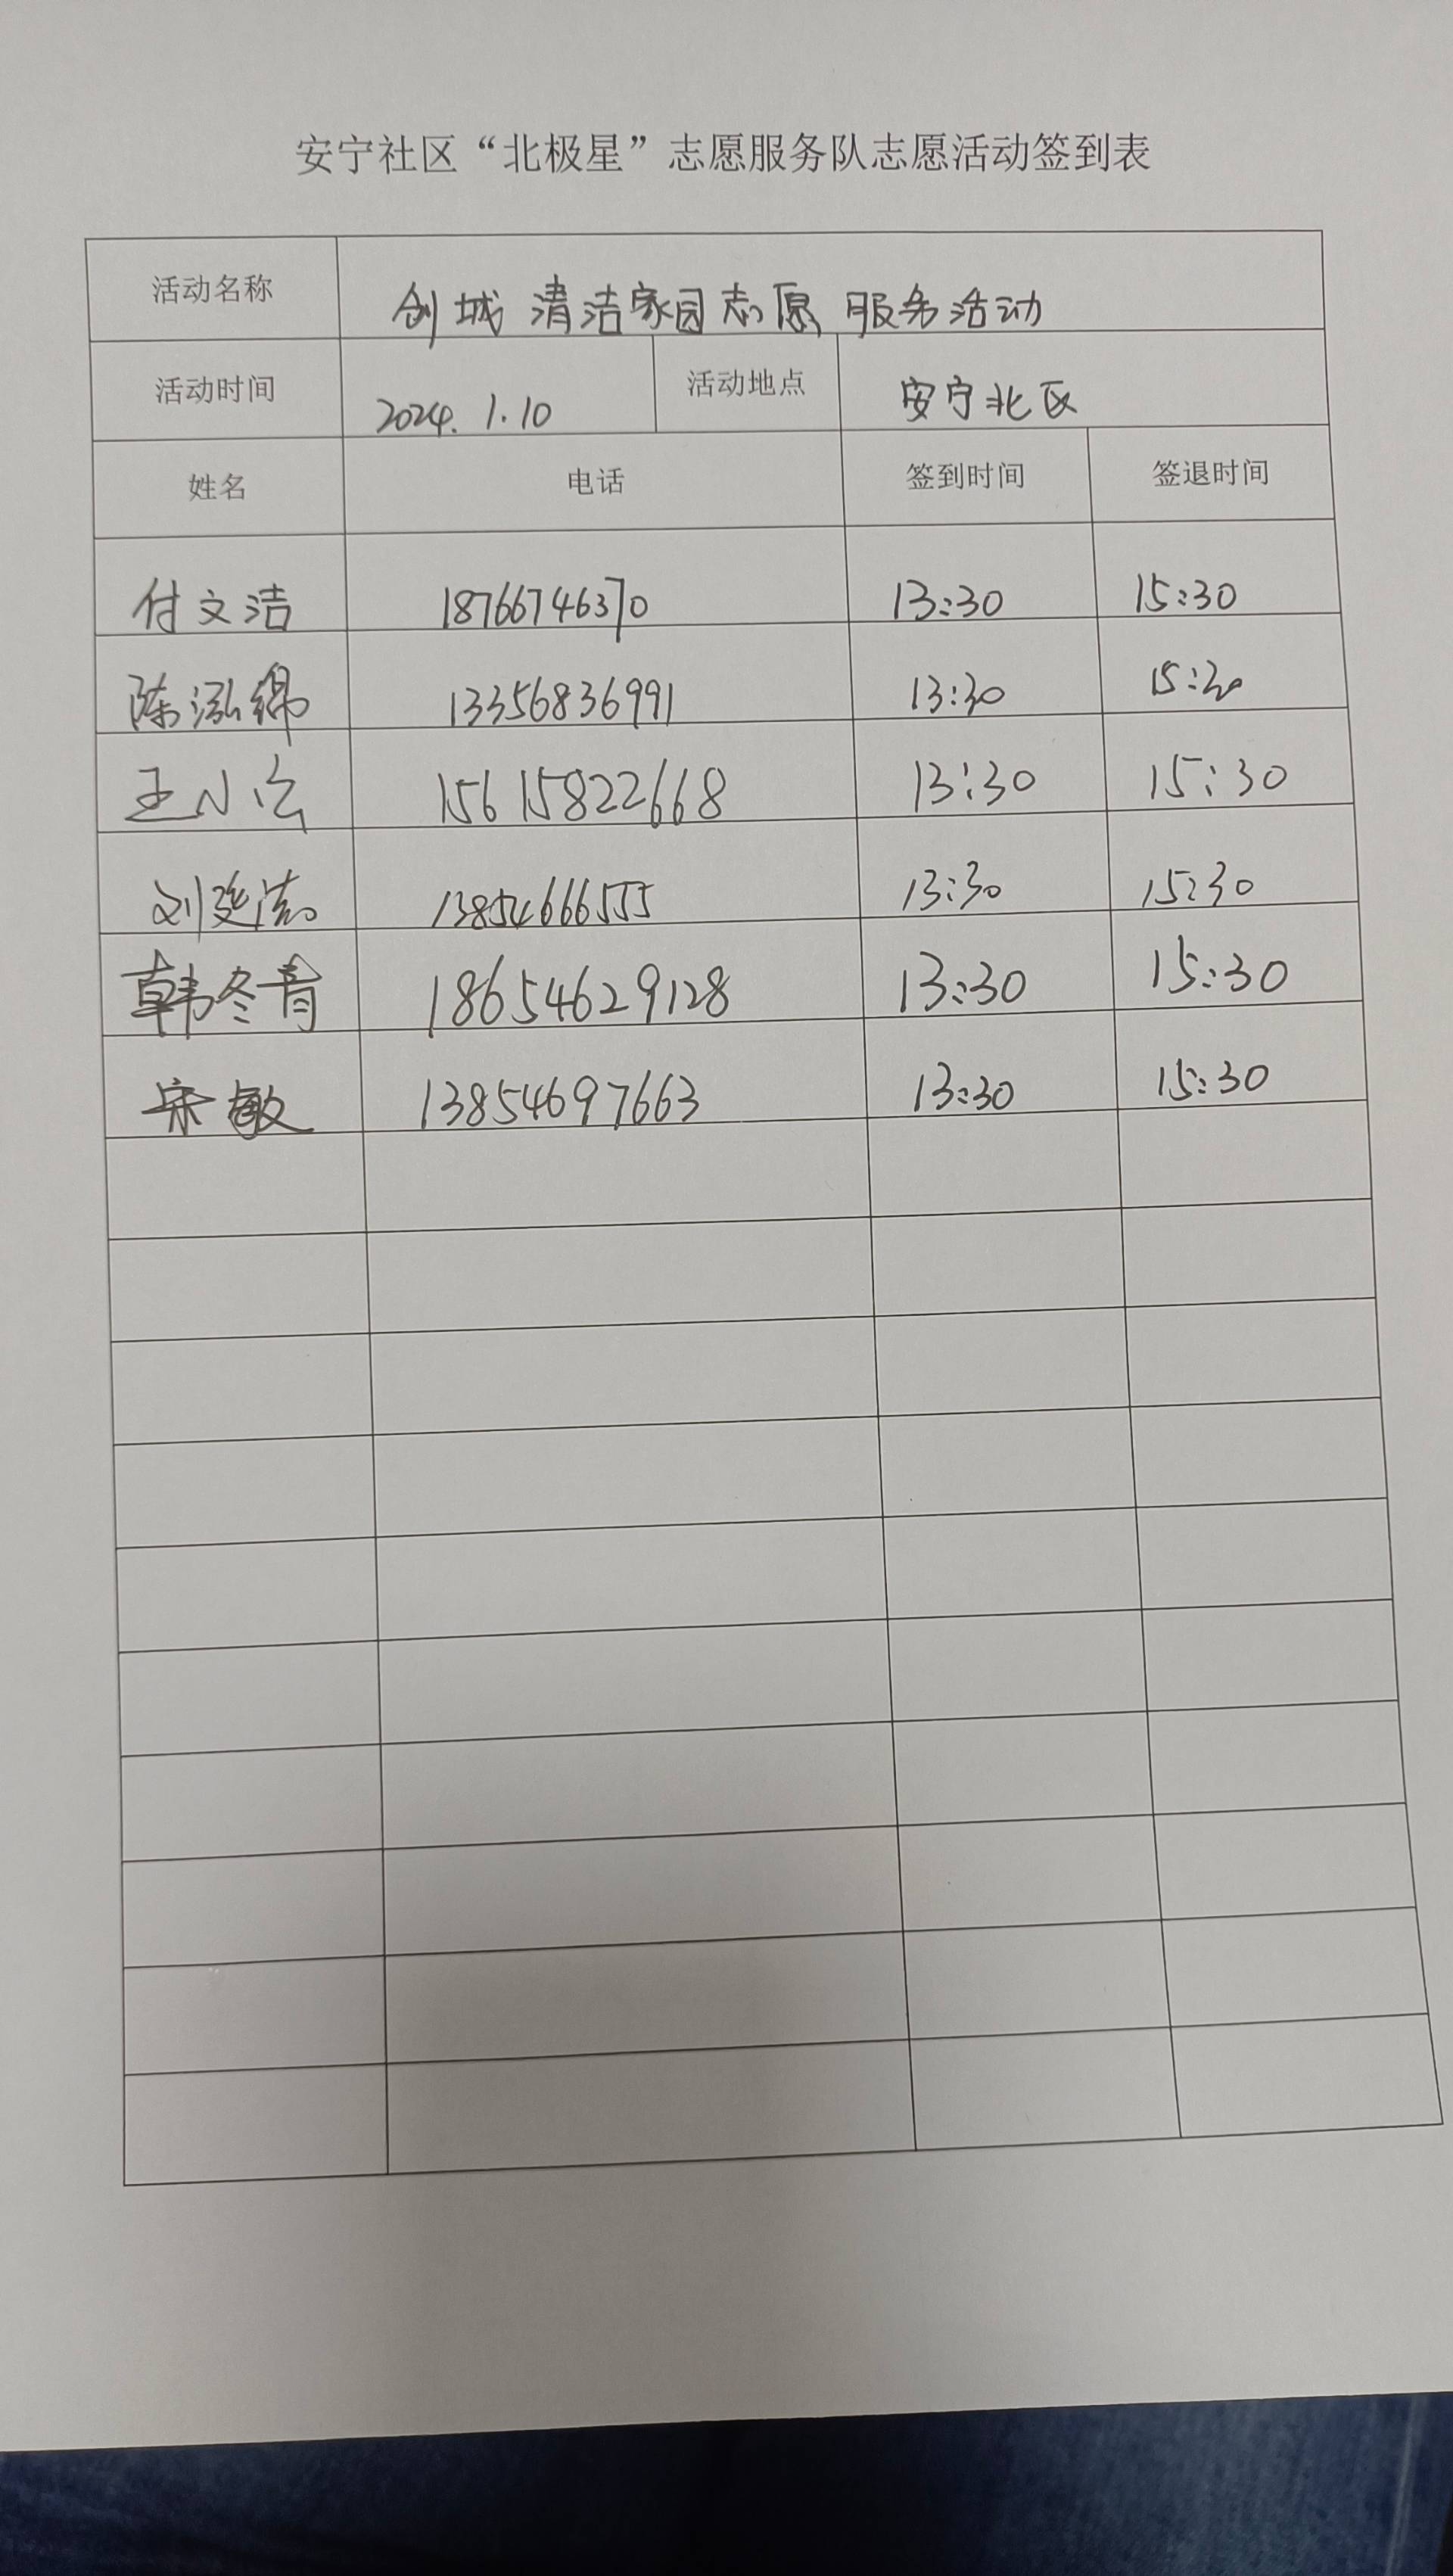 安宁社区“北极星”志愿服务队志愿活动签到表
活动名称 创城 清洁家园志愿 服务活动
活动时间 2024.1.10 活动地点 安宁北区
姓名 电话 签到时间 签退时间
付文洁 18766746370 13:30 15:30
陈泓锦 13356836991 13:30 15:30
王小 15615822668 13:30 15:30
刘延浩 13854666555 13:30 15:30
韩冬青 18654629128 13:30 15:30
宋敏 13854697663 13:30 15:30